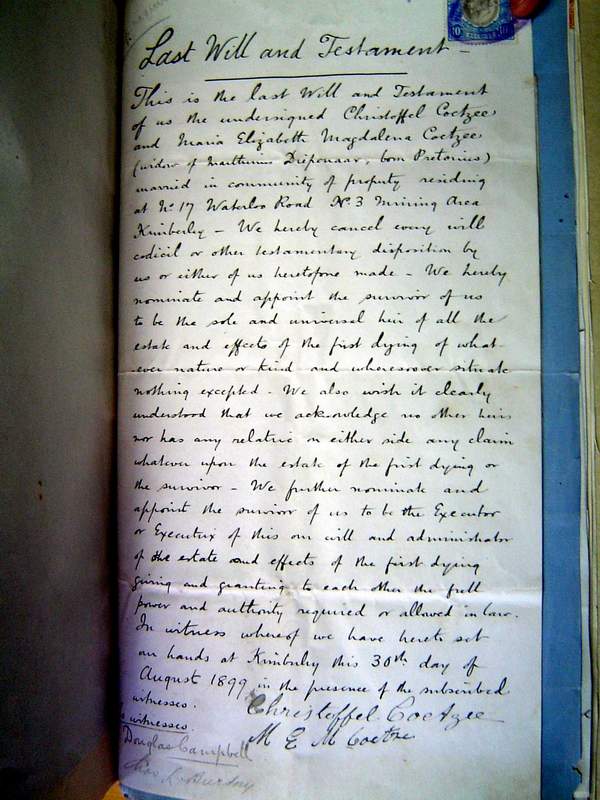 Last Will and Testament -
This is the last Will and Testament
of us the undersigned Christoffel Coetzee
and Maria Elizabeth Magdalena Coetzee
(widow of Marthinus Diponaar, born Pretorius)
married in community of property residing
at No 17 Waterloo Road No. 3 Mining Area
Kimberley - We hereby cancel every will
codicil or other testamentary disposition by
us or either of us heretofore made - We hereby
nominate and appoint the survivor of us
to be the sole and universal heir of all the
estate and effects of the first dying of what
-ever nature or kind and wheresoever situate
nothing excepted - We also wish it clearly
understood that we acknowledge no other heirs
nor has any relative on either side any claim
whatever upon the estate of the first dying or
the survivor - We further nominate and
appoint the survivor of us to be the Executor
or Executrix of this our will and administrator
of the estate and effects of the first dying
giving and granting to each other the full
power and authority required or allowed in law.
In witness whereof we have hereto set
our hands at Kimberley this 30th day of
August 1899 in the presence of the subscribed
witnesses.
Christoffel Coetzee
As witnesses.
M E M Coetzee
Douglas Campbell